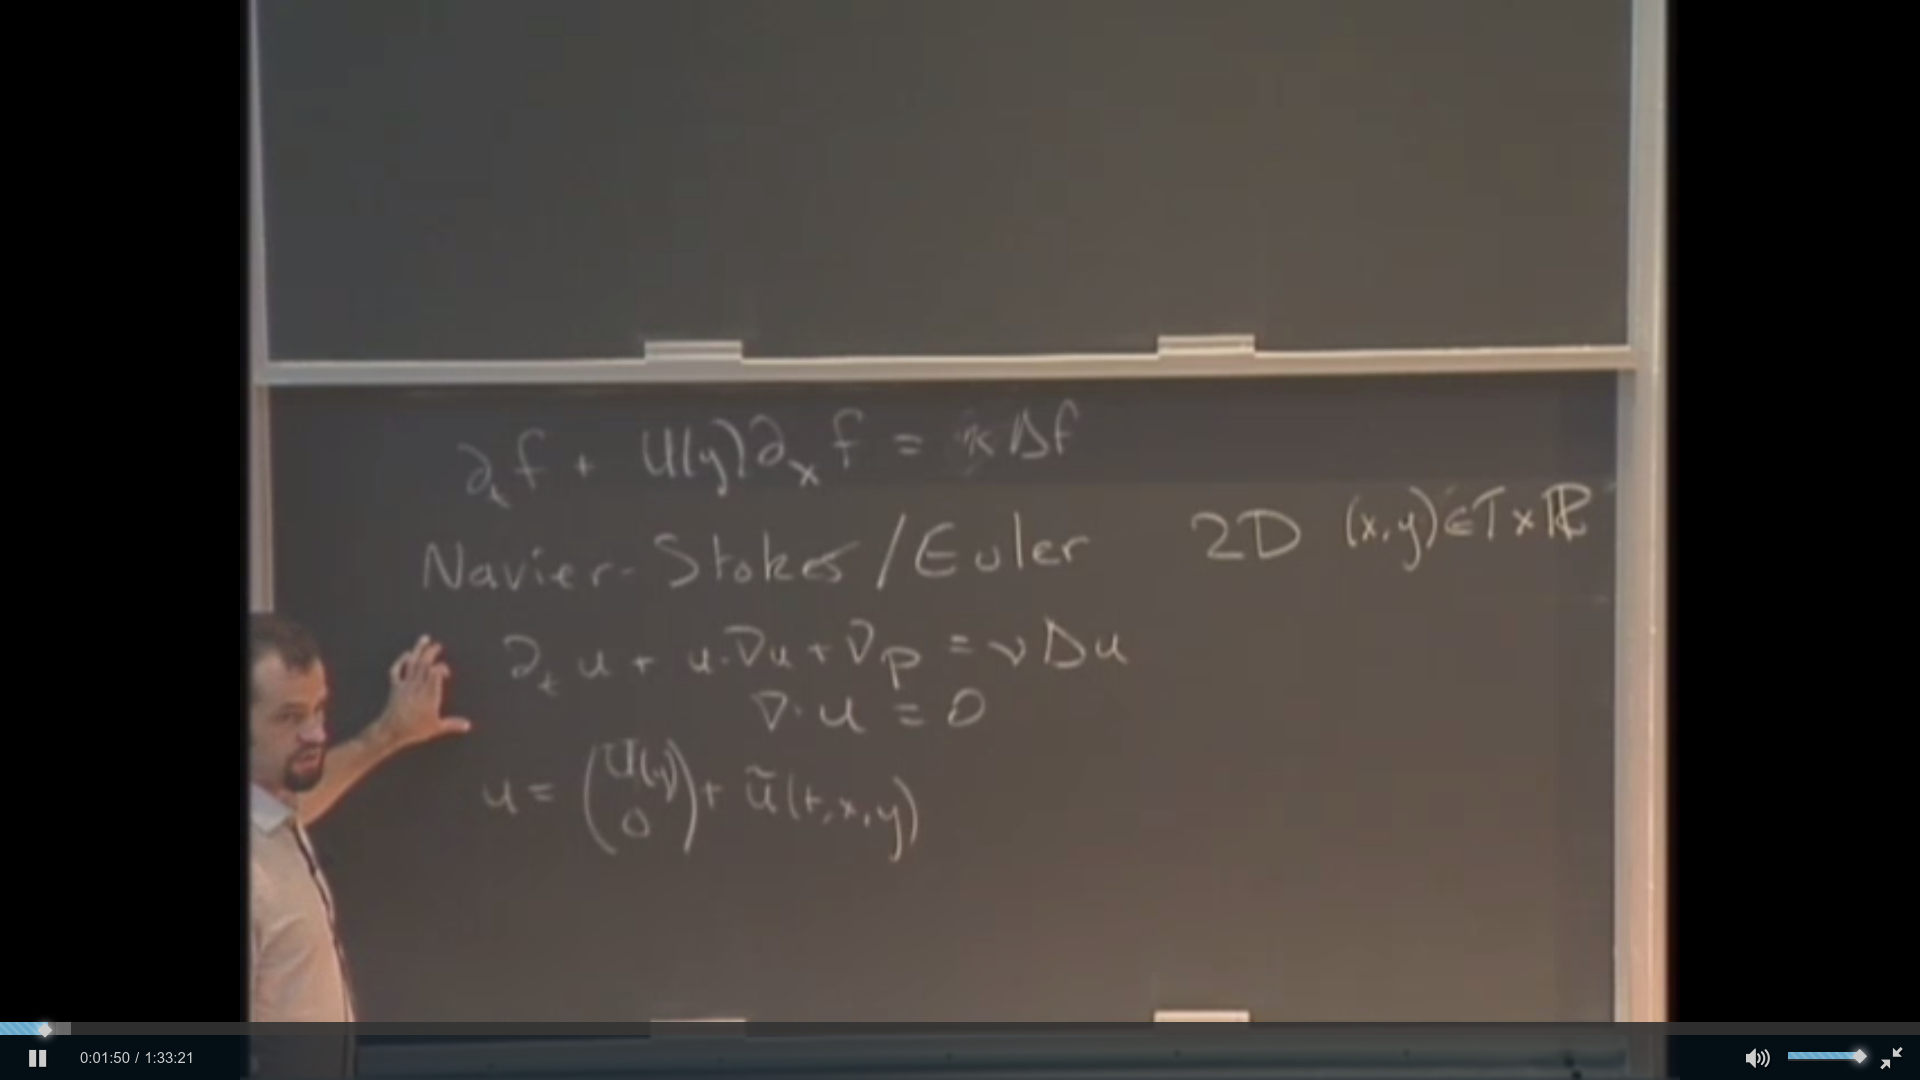 ∂ₜf + U(y)∂ₓf = κΔf
Navier-Stokes/Euler 2D (x,y)∈T×ℝ
∂ₜu + u·∇u + ∇p = νΔu
∇·u = 0
u = (U(y) 0) + ũ(t,x,y)
0:01:50 / 1:33:21